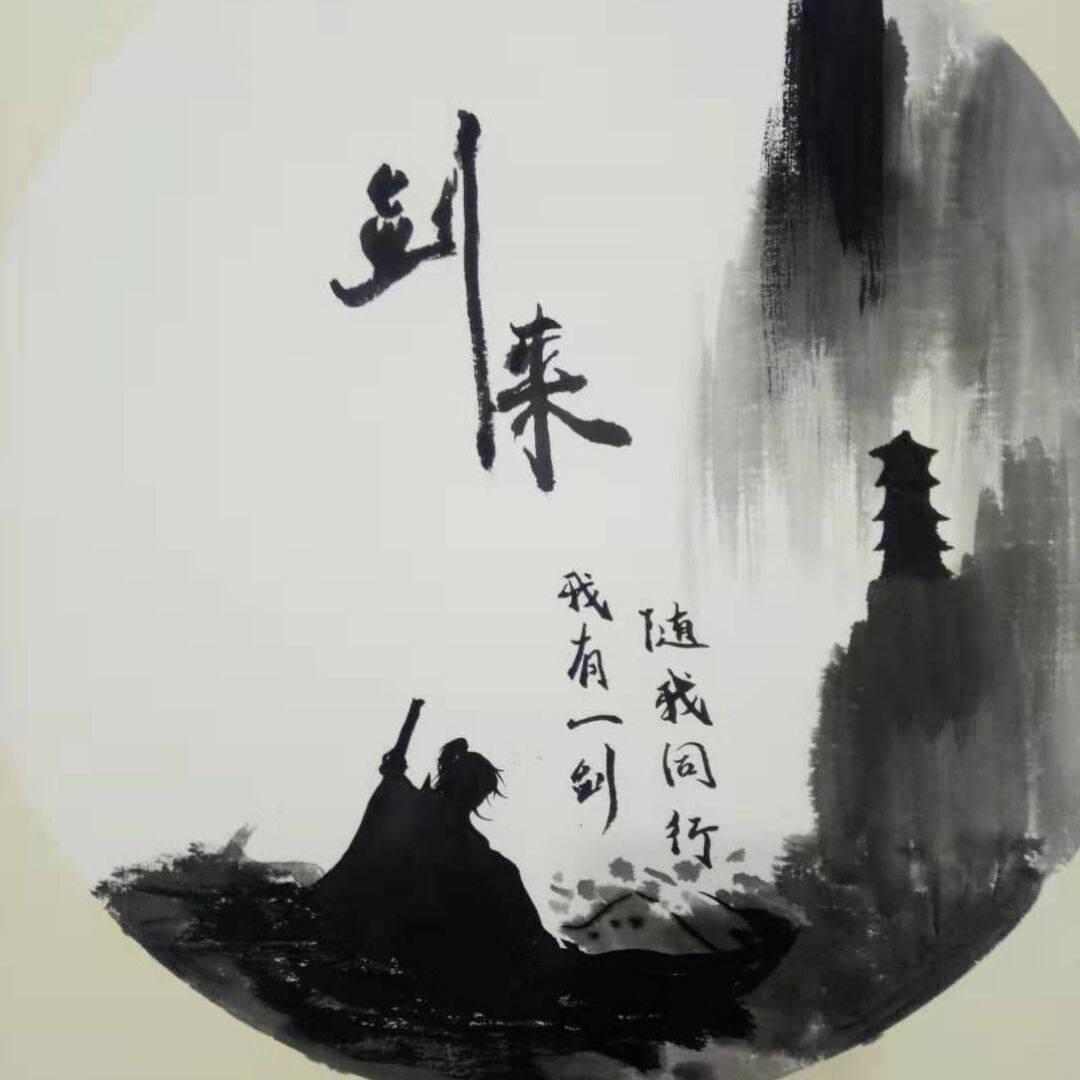 剑来
我有一剑
随我同行